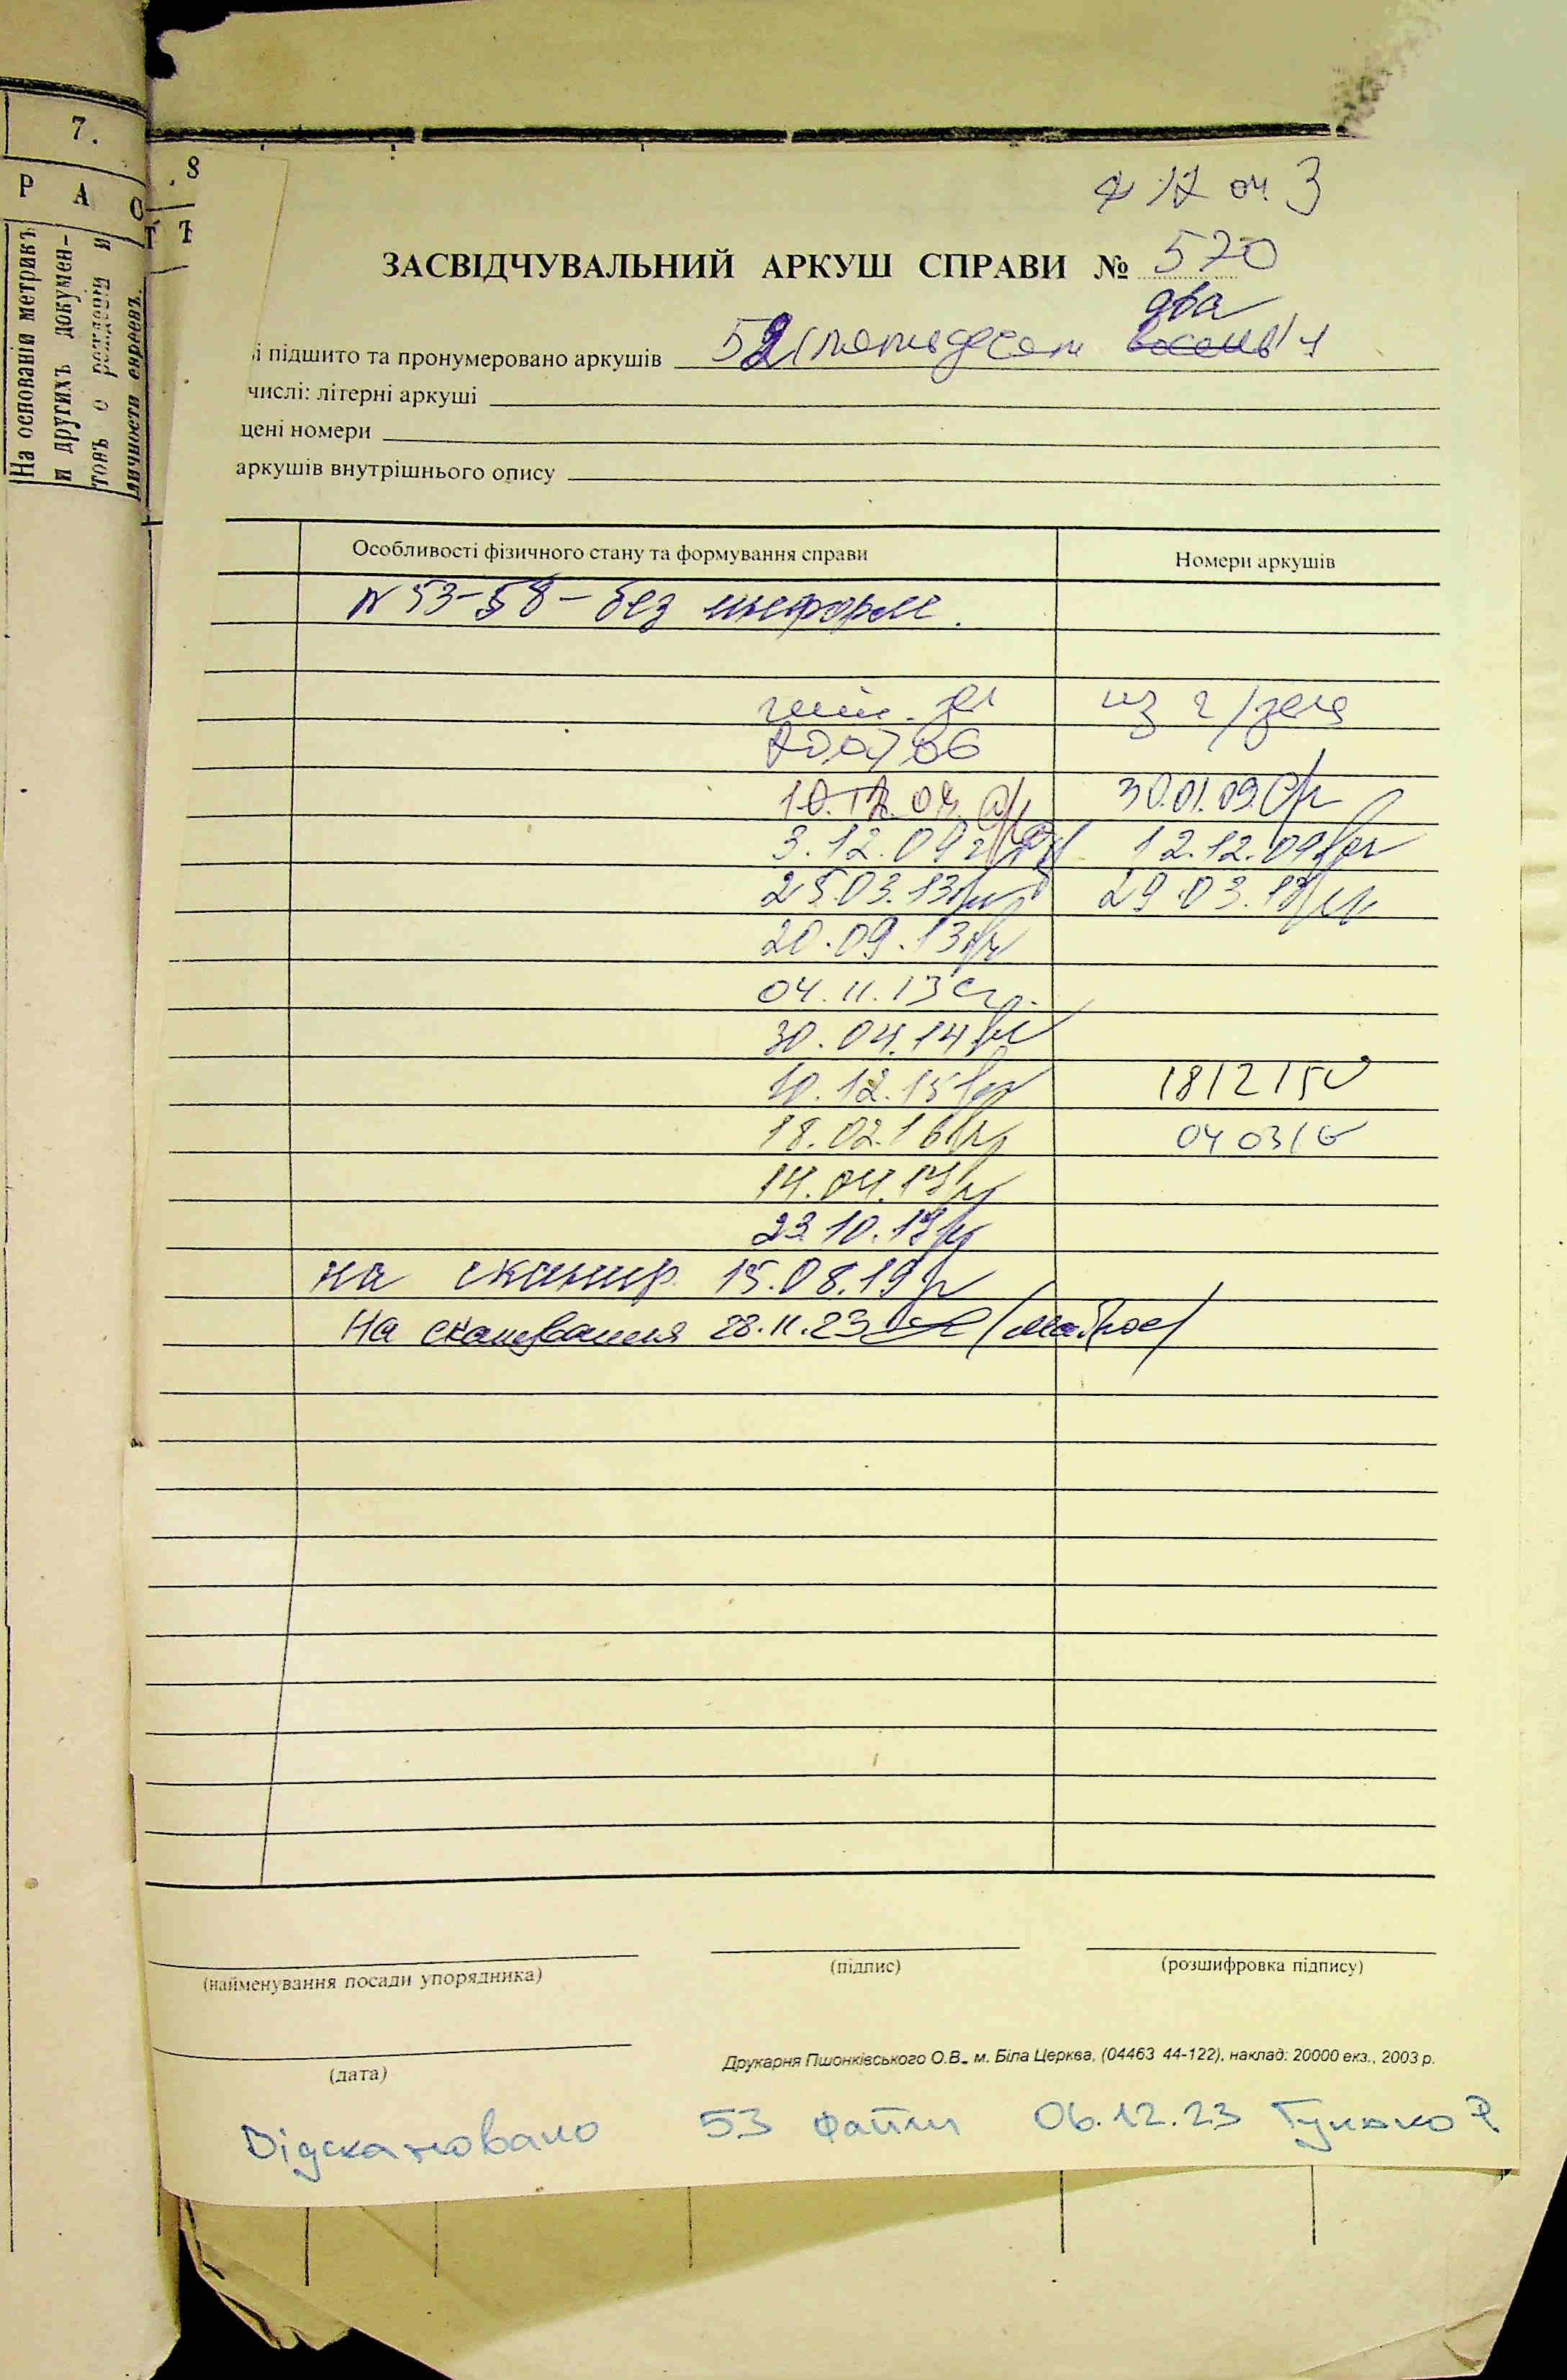 7.
Р А С
На основаніи метрикъ
и другихъ докумен-
товъ о
личности евреевъ.
8
ф 17 оп. 3
ЗАСВІДЧУВАЛЬНИЙ АРКУШ СПРАВИ № 570
два
і підшито та пронумеровано аркушів 52 (пятьдесят восемь)
числі: літерні аркуші
цені номери
аркушів внутрішнього опису
Особливості фізичного стану та формування справи Номери аркушів
N 53-58 – без информ.
чит. зал из ч/зала
200706
10.12.07 30.01.09
3.12.09 12.12.09
25.03.13 29.03.13
20.09.13
04.11.13
30.04.14
10.12.15 181215
18.02.16 040316
14.04.17
23.10.17
на сканир. 15.08.19
На сканування 28.11.23
(найменування посади упорядника) (підпис) (розшифровка підпису)
(дата)
Друкарня Пшонківського О.В., м. Біла Церква, (04463 44-122), наклад: 20000 екз., 2003 р.
Відскановано 53 файли 06.12.23